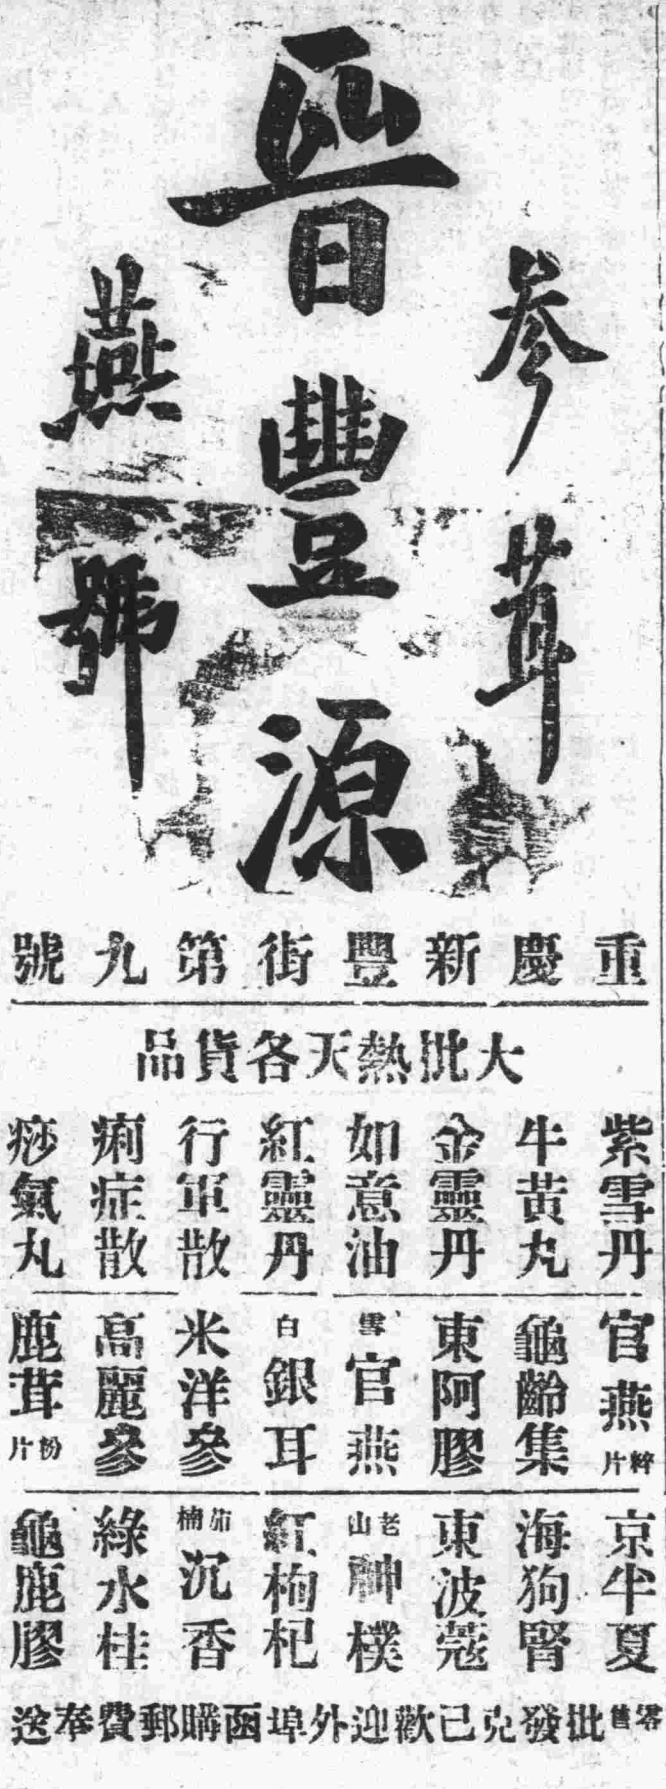 參茸
晉豐源
燕號
重慶新豐街第九號
大批熱天各貨品
紫雪丹
牛黃丸
金靈丹
如意油
紅靈丹
行軍散
痢症散
痧氣丸
官燕粹片
龜齡集
東阿膠
雪官燕
白銀耳
米洋參
高麗參
鹿茸粉片
京半夏
海狗腎
東波蔻
老山神樸
紅枸杞
茄楠沉香
綠水桂
龜鹿膠
零售批發克已歡迎外埠函購郵費奉送